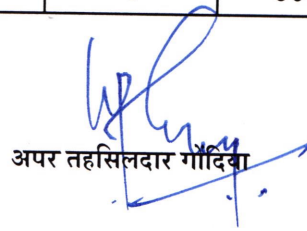 अपर तहसिलदार गोंदिया